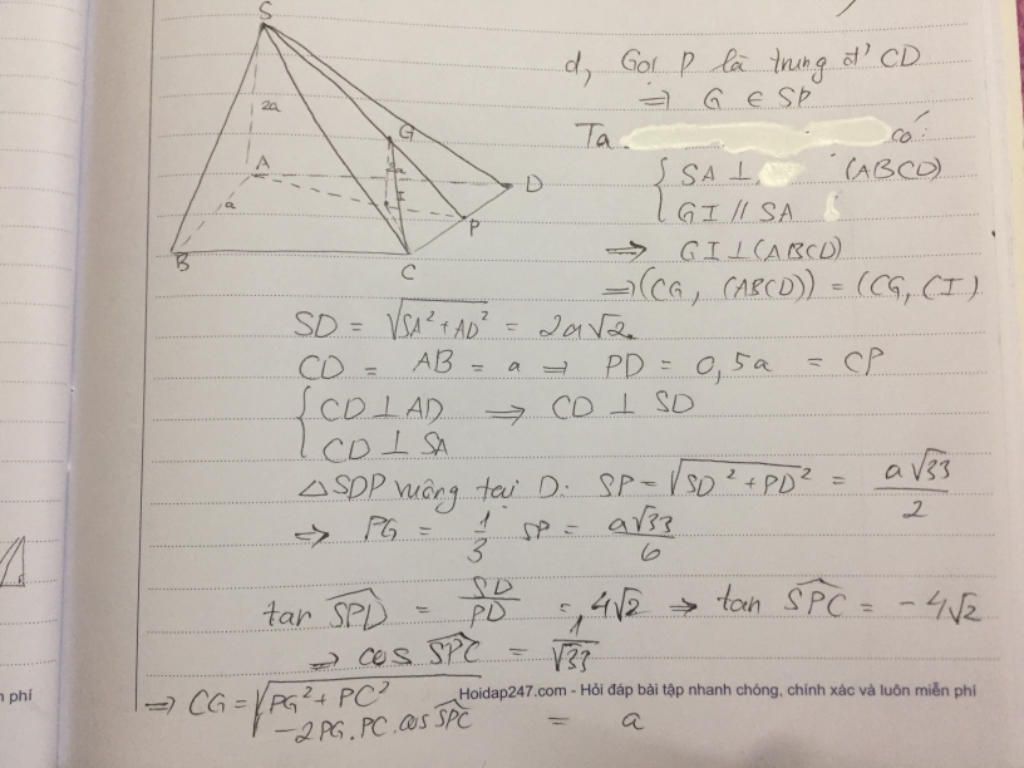 S
2a
G
A
D
a
I
P
B
C
d, Gọi P là trung đ' CD
⇒ G ∈ SP
Ta có:
{ SA ⊥ (ABCD)
GI // SA
⇒ GI ⊥ (ABCD)
⇒ (CG, (ABCD)) = (CG, CI)
SD = √(SA² + AD²) = 2a√2
CD = AB = a ⇒ PD = 0,5a = CP
{ CD ⊥ AD ⇒ CD ⊥ SD
CD ⊥ SA
△SDP vuông tại D: SP = √(SD² + PD²) = a√33/2
⇒ PG = 1/3 SP = a√33/6
tan SPD = SD/PD = 4√2 ⇒ tan SPC = -4√2
⇒ cos SPC = 1/√33
n phí
Hoidap247.com - Hỏi đáp bài tập nhanh chóng, chính xác và luôn miễn phí
⇒ CG = √(PG² + PC²
-2PG.PC.cos SPC = a